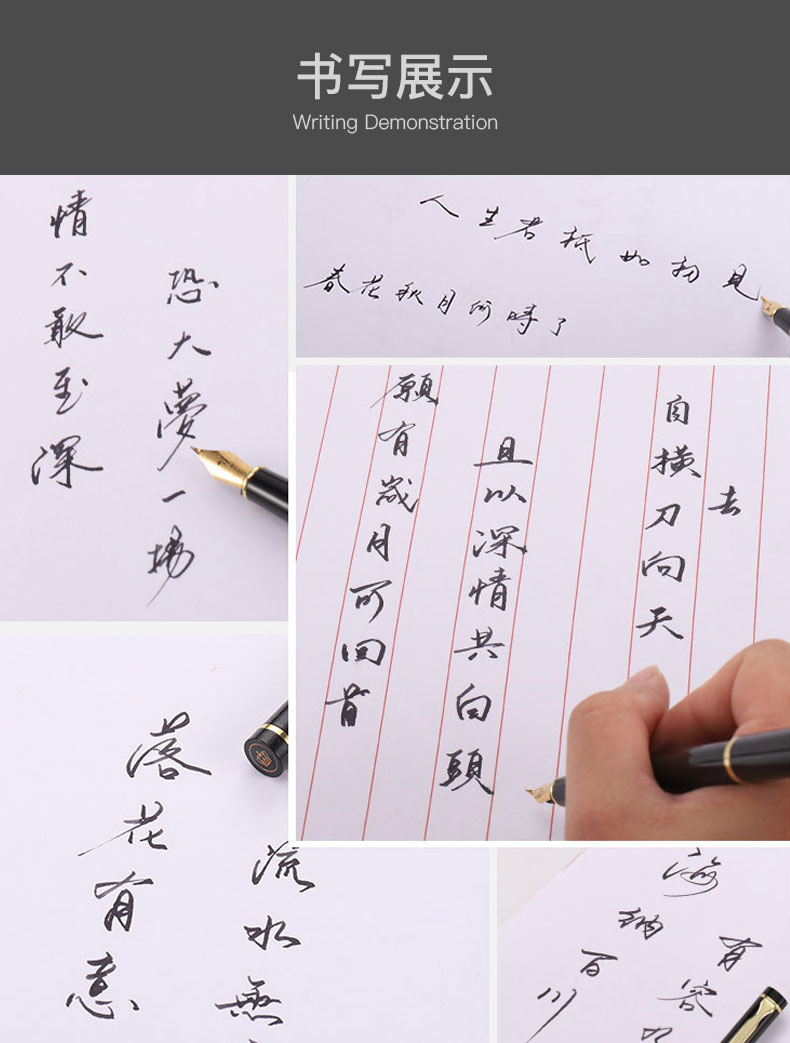 书写展示
Writing Demonstration
情不敢至深
恐大夢一場
人生若祇如初見
春花秋月何時了
願有歲月可回首
且以深情共白頭
自橫刀向天
去
落花有意
流水無
海納百川
有容